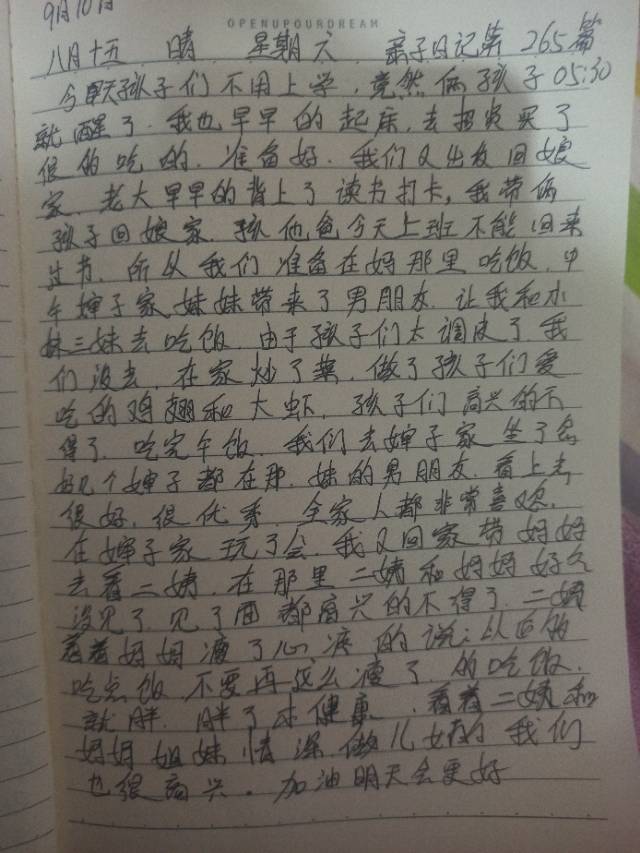 9月10日
OPENUPOURDREAM
八月十五 晴 星期六 亲子日记第265篇
今天孩子们不用上学,竟然俩孩子05:30
就醒了.我也早早的起床,去超市买了
很多吃的.准备好.我们又出发回娘
家.老大早早的背上了读书打卡,我带俩
孩子回娘家.孩他爸今天上班不能回来
过节.所从我们准备在妈那里吃饭.中
午婶子家妹妹带来了男朋友.让我和小
妹三妹去吃饭.由于孩子们太调皮了.我
们没去.在家炒了菜.做了孩子们爱
吃的鸡翅和大虾.孩子们高兴的不
得了.吃完午饭.我们去婶子家坐了会
好几个婶子都在那.妹的男朋友.看上去
很好.很优秀.全家人都非常喜欢.
在婶子家玩了会.我又回家带妈妈
去看二姨.在那里二姨和妈妈好久
没见了见了面都高兴的不得了.二姨
看着妈妈瘦了心疼的说:从后
吃点饭不要再这么瘦了.的吃饭.
就胖.胖了才健康.看着二姨和
妈妈姐妹情深做儿女的我们
也很高兴.加油明天会更好